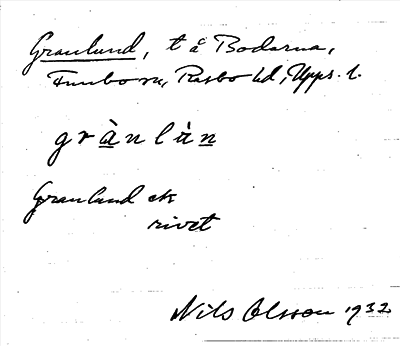 Granlund, t å Bodarna,
Funbo sn, Rasbo hd, Upps. l.
grànlàn
Granlund ek
rivet
Nils Olsson 1932